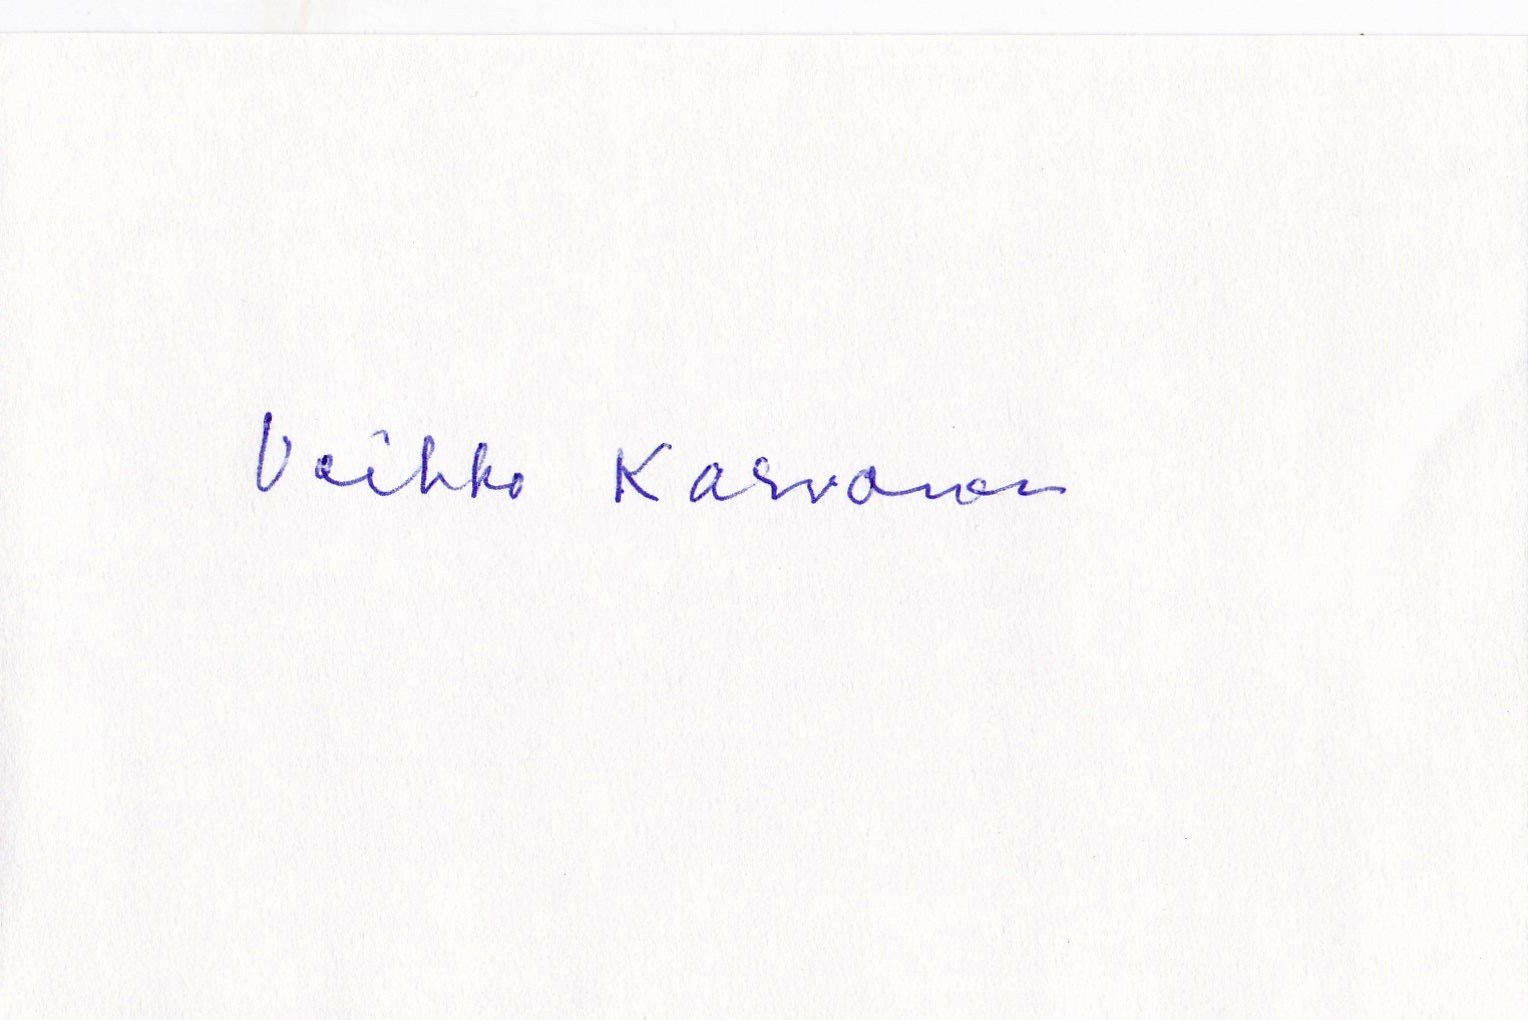 Veikko Karvonen